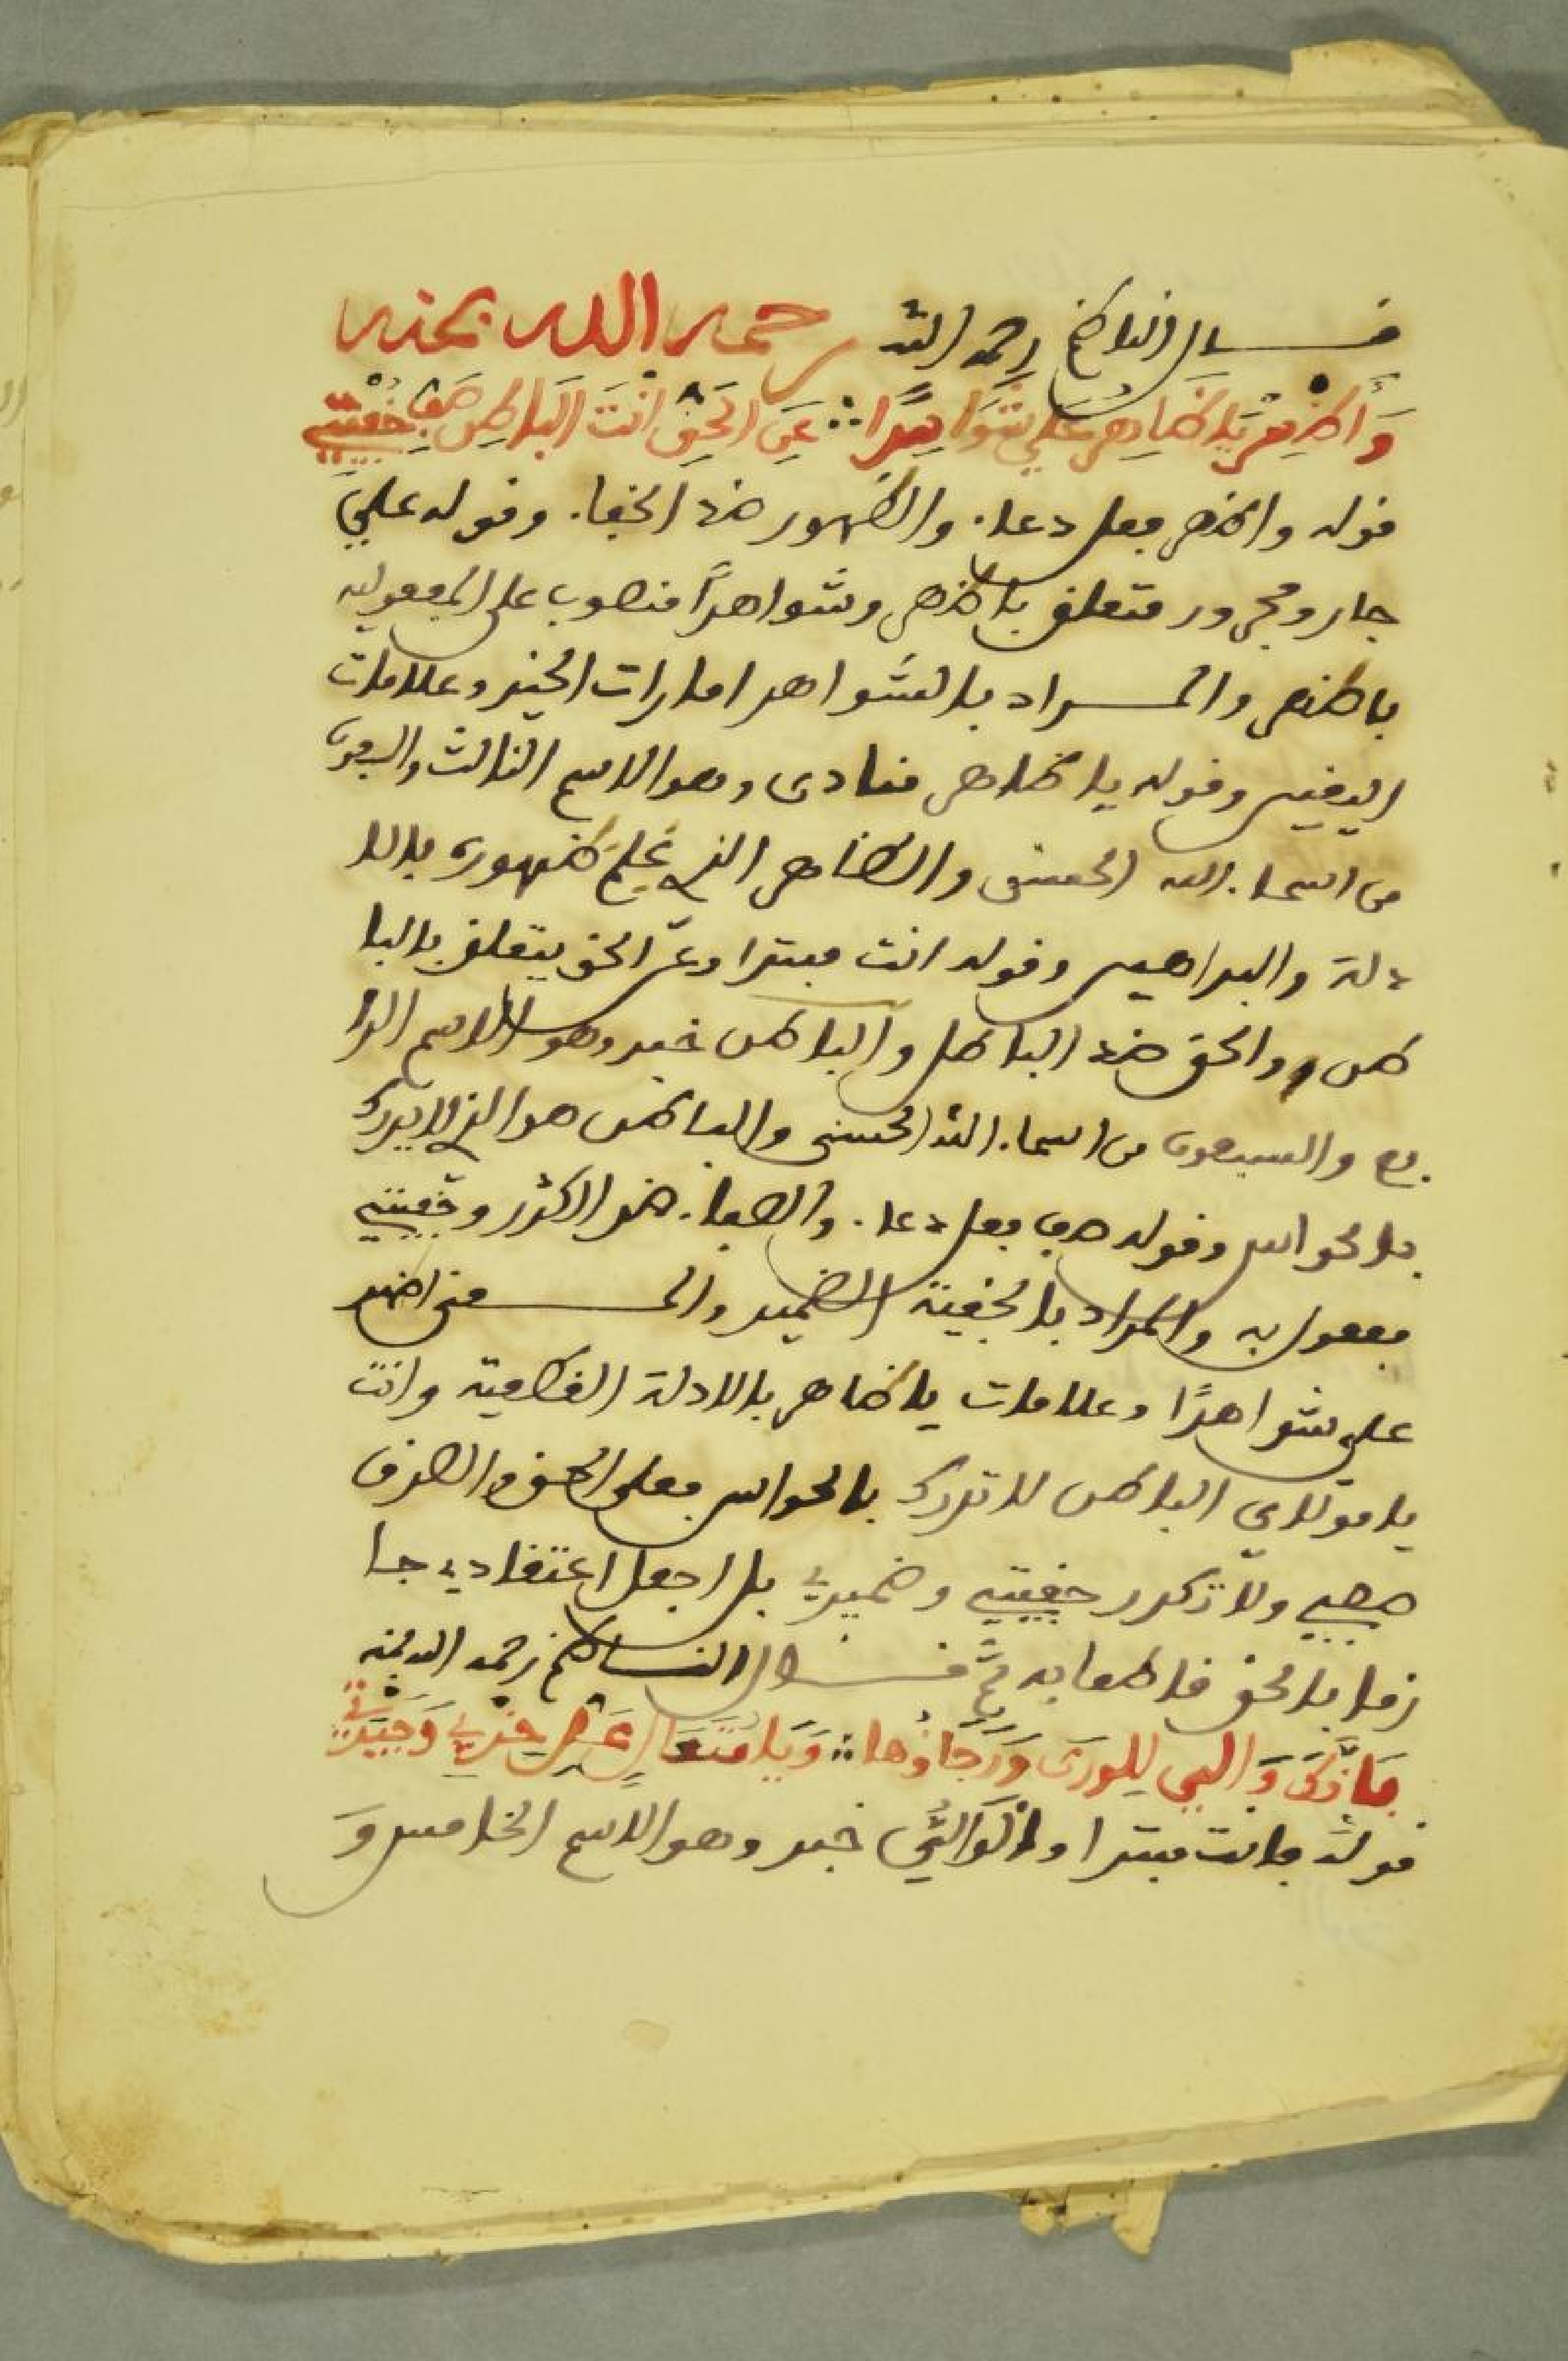 قال الناظم رحمه الله رحمه الله بمنه
وَأظهِر يَا ظَاهِر عَلَيَّ شَوَاهِدًا ؞ عَنِ الحَقِّ أنتَ البَاطِن صَفِّ خفيتي
قوله واظهر فعل دعاء والظهور ضد الخفاء وقوله عليَّ
جار ومجرور متعلق باظهر وشواهدًا منصوب على المفعولية
باظهر والمراد بالشواهد امارات الخير وعلامات
اليقين وقوله يا ظاهر منادى وهو الاسم الثالث والسبعون
من اسماء الله الحسنى والظاهر الذي علم ظهوره بالا
دلة والبراهين وقوله انت مبتدا وعن الحق يتعلق بالبا
طن والحق ضد الباطل والباطن خبر وهو الاسم الرا
بع والسبعون من اسماء الله الحسنى والباطن هو الذي لا يدرك
بالحواس وقوله صف فعل دعاء والصفاء ضد الاكدر وخفيتي
مفعول به والمراد بالخفية الضمير والمعنى اظهر
علي شواهدًا وعلامات يا ظاهر بالادلة القطعية وانت
يا مولاي الباطن لا تدرك بالحواس فعلى الحق والصدق
صفني ولا تكدر خفيتي وضميري بل اجعل اعتقادي جا
زما بالحق قاطعا به ثم قال الناظم رحمه الله بمنه
فَأنتَ وَالي للورَى وَرَجَاؤُها ؞ وَيَا مُتَعَالٍ
قوله فانت مبتدا والوَالِي خبر وهو الاسم الخامس وَ